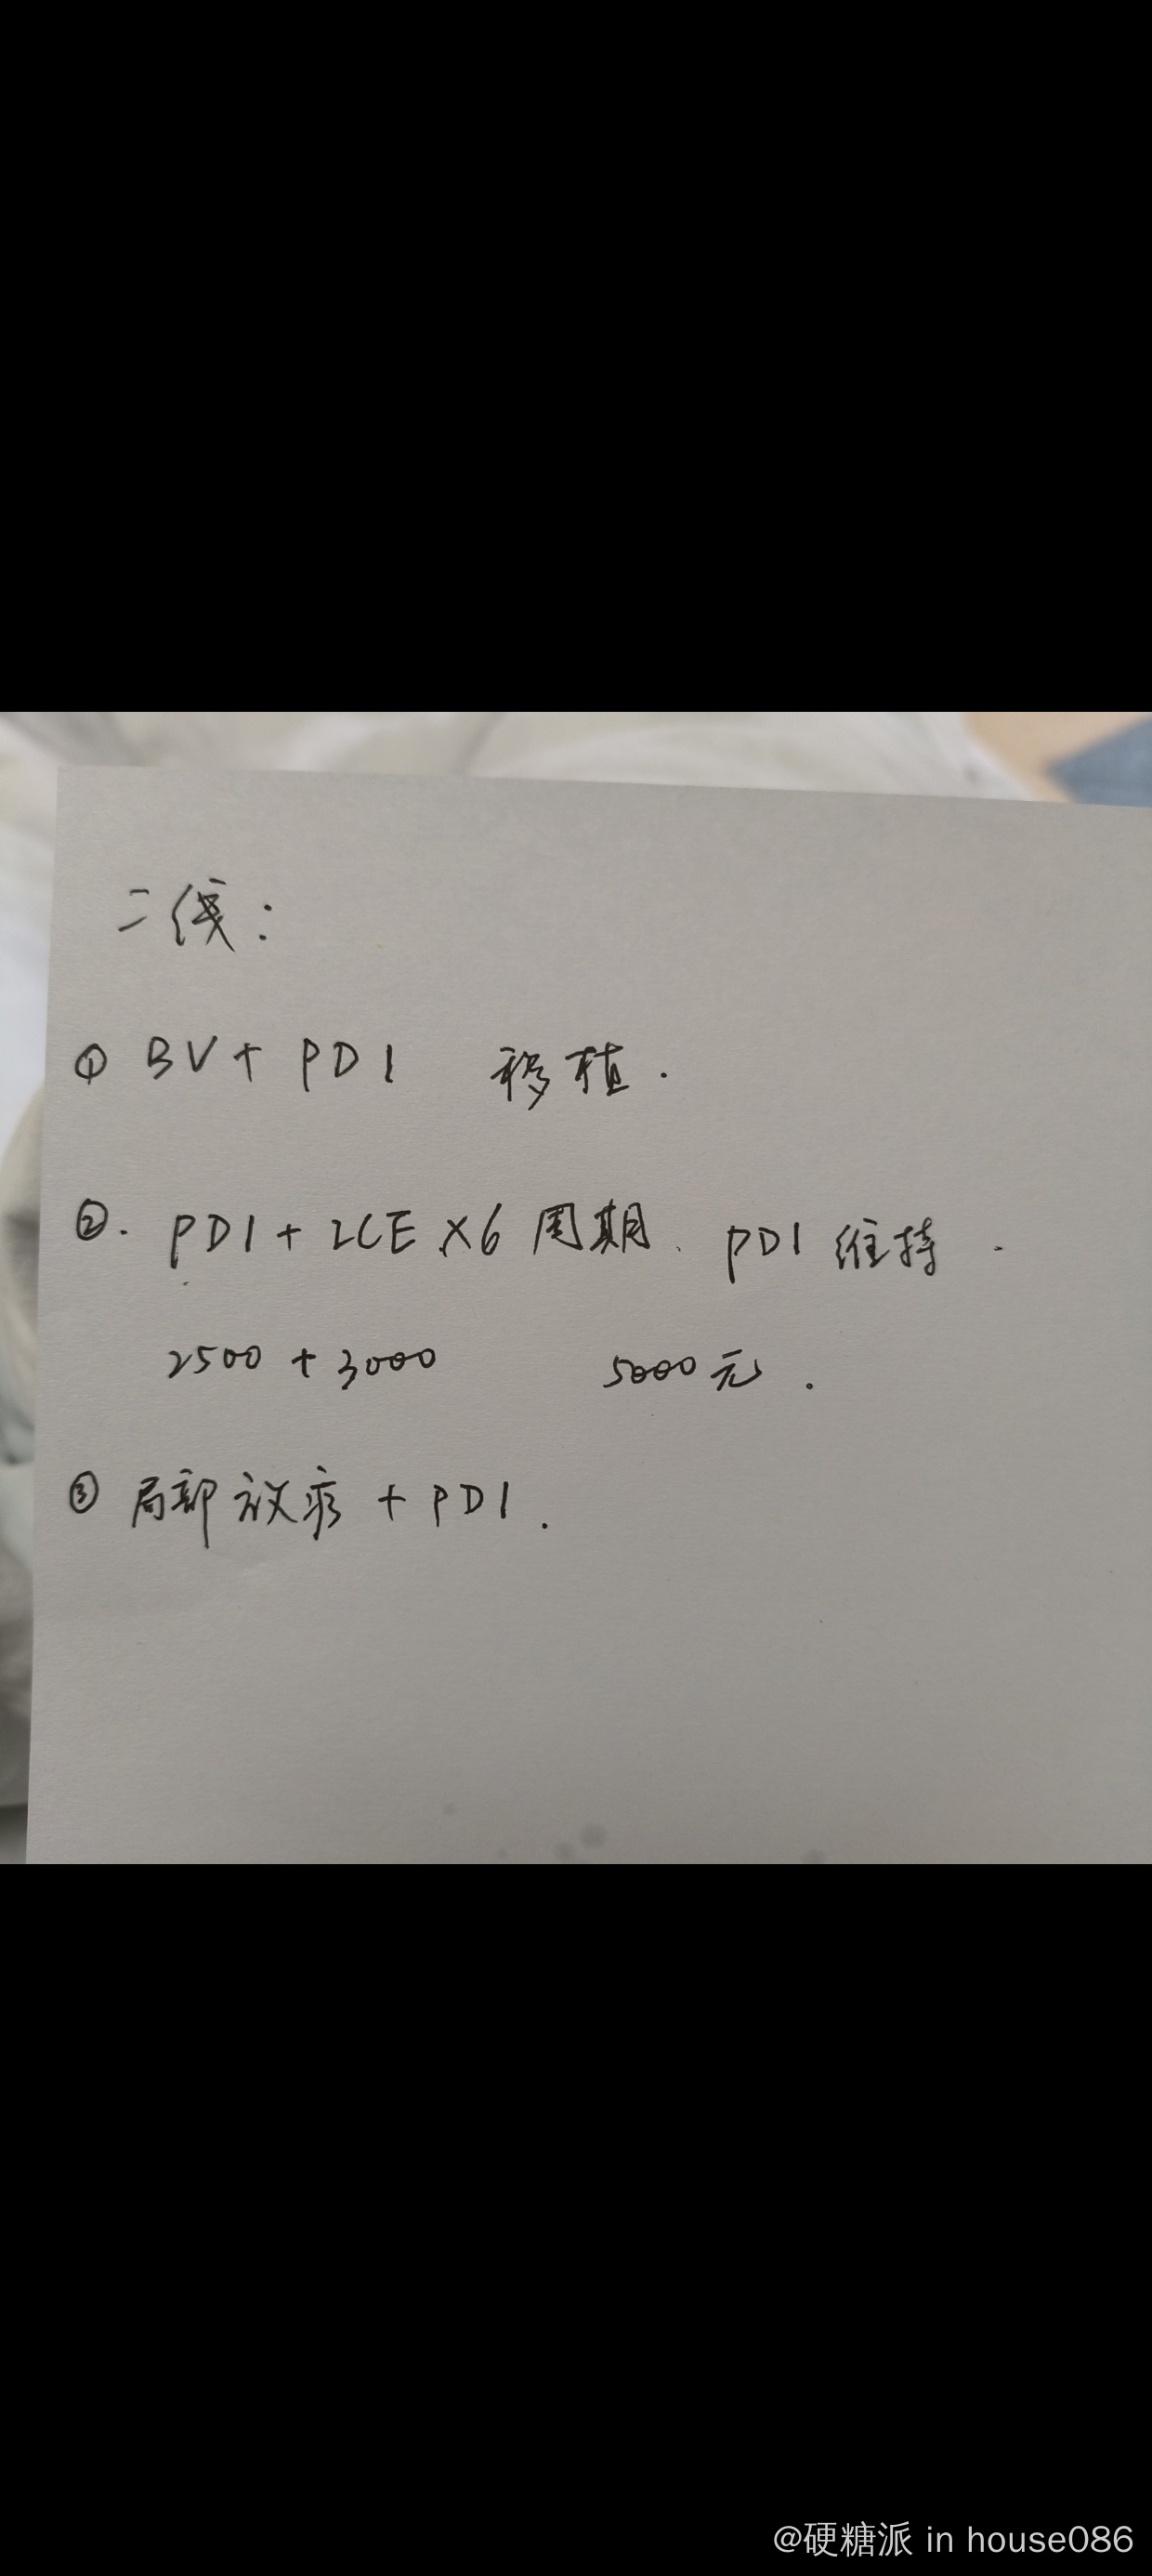 二线：
① BV + PD1 移植.
②. PD1 + ICE ×6 周期、PD1 维持.
2500 + 3000 5000元.
③ 局部放疗 + PD1.
@硬糖派 in house086